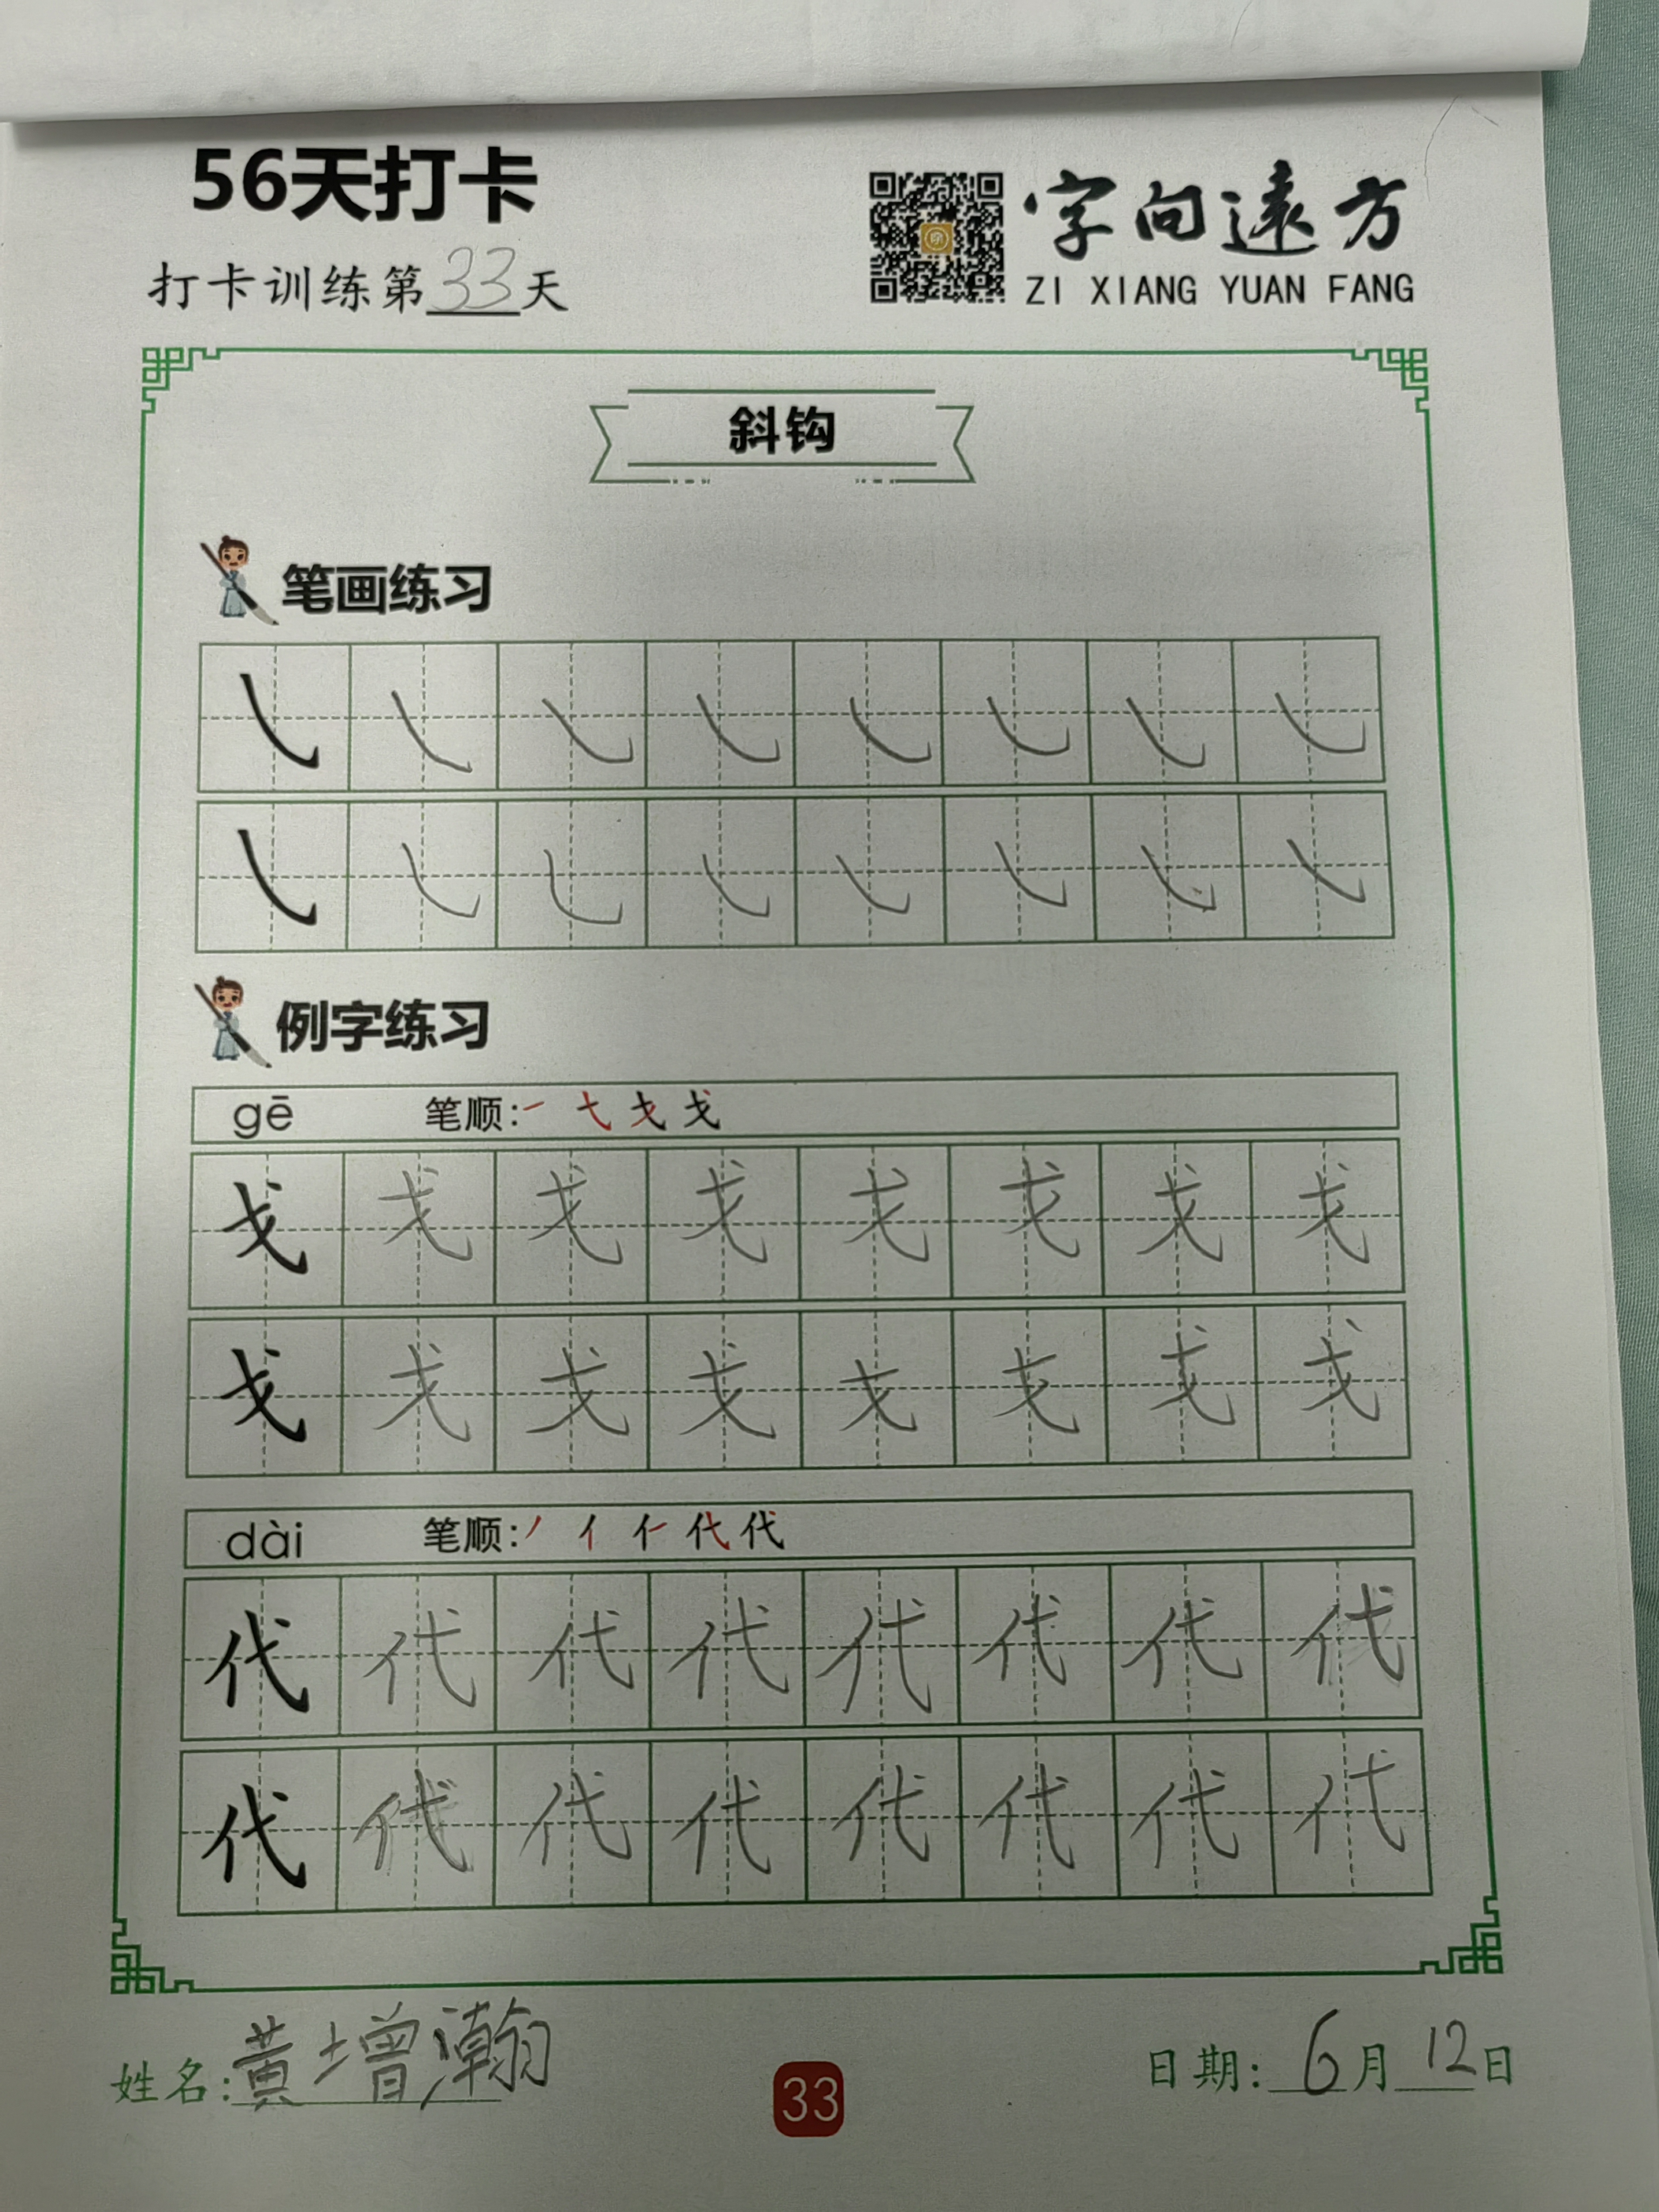 56天打卡
打卡训练第33天
字向遠方
ZI XIANG YUAN FANG
斜钩
笔画练习
㇂ ㇂ ㇂ ㇂ ㇂ ㇂ ㇂ ㇂
㇂ ㇂ ㇂ ㇂ ㇂ ㇂ ㇂ ㇂
例字练习
gē 笔顺:㇐ 弋 戈 戈
戈 戈 戈 戈 戈 戈 戈 戈
戈 戈 戈 戈 戈 戈 戈 戈
dài 笔顺:丿 亻 仁 代 代
代 代 代 代 代 代 代 代
代 代 代 代 代 代 代 代
姓名:黄增瀚
33
日期:6月12日